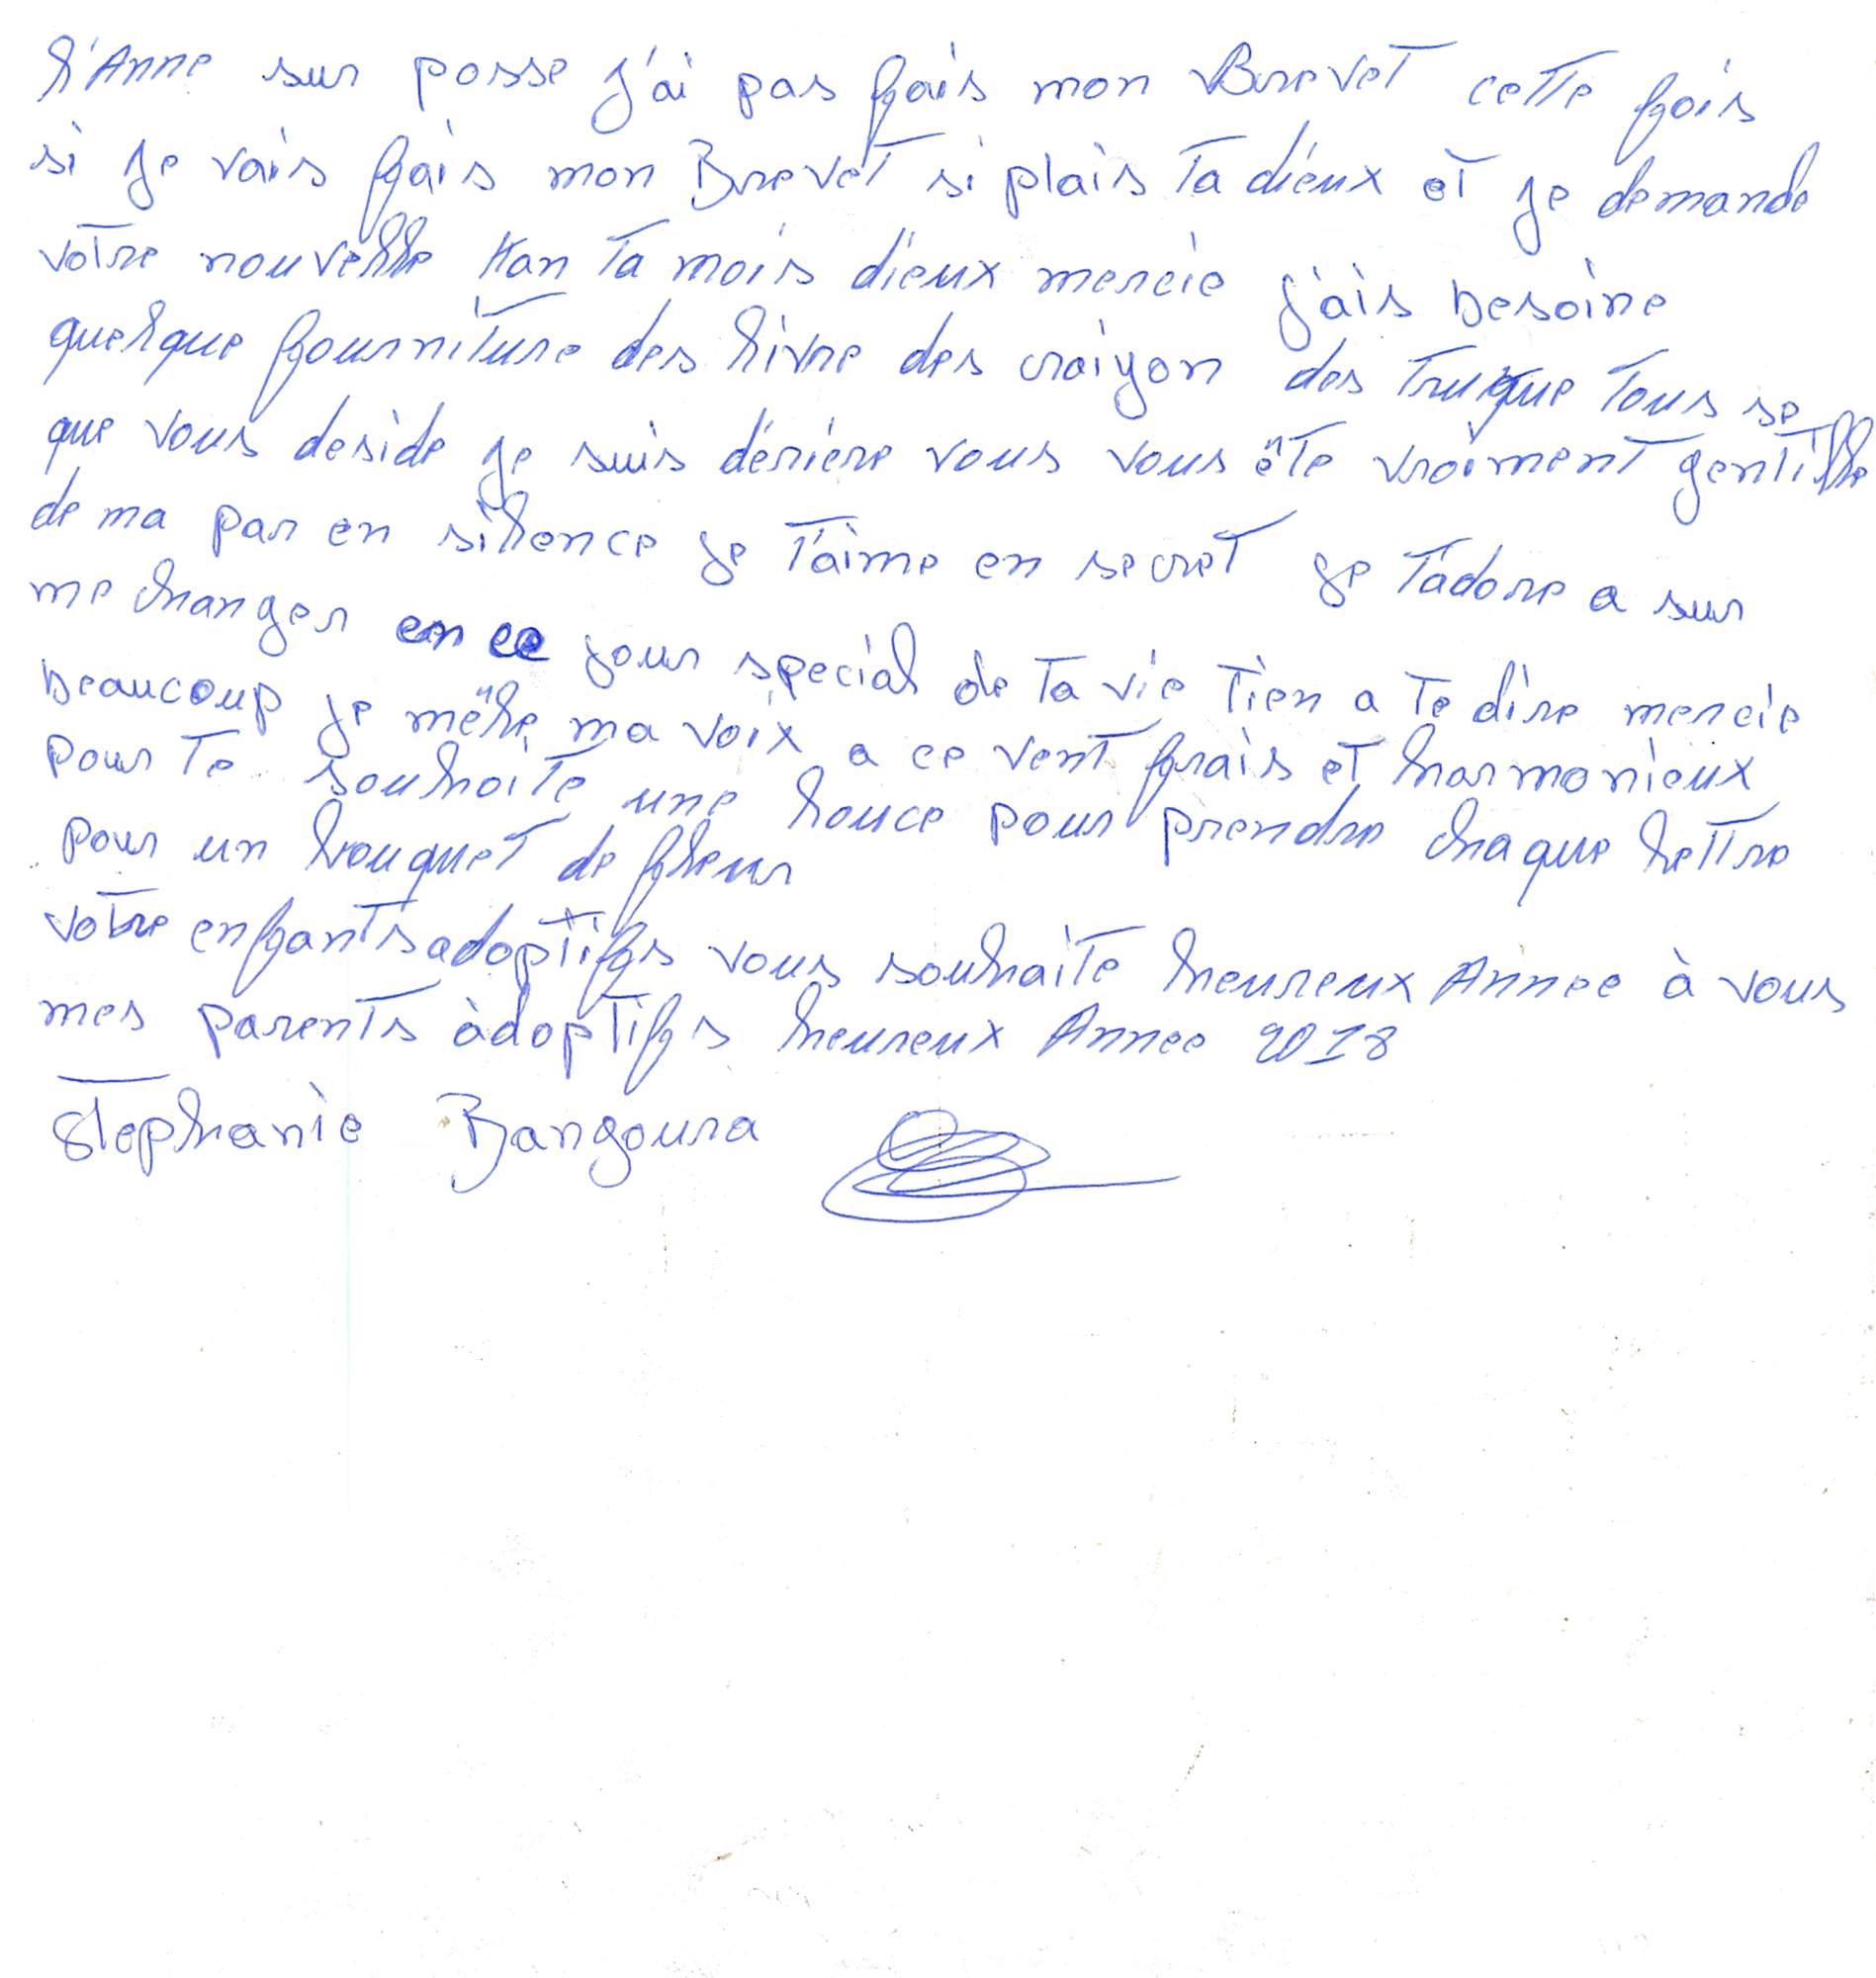 l'Anne sur posse j'ai pas fais mon Brevet cette fois
si je vais fais mon Brevet si plais ta dieux et je demande
votre nouvelle kan ta mois dieux mercie j'ais besoine
quelque fourniture des livre des craiyon des truque tous se
que vous deside je suis dérière vous vous ête vraiment gentille
de ma par en silence je t'aime en secret je t'adore a sur
me changer en ce jour special de ta vie tien a te dire mercie
beaucoup je mêle ma voix a ce vent frais et harmonieux
pour te souhaite une houce pour prendre chaque lettre
pour un bouquet de fleur
votre enfants adoptifs vous souhaite heureux Annee à vous
mes parents àdoptifs heureux Annee 2018
Stephanie Bangoura